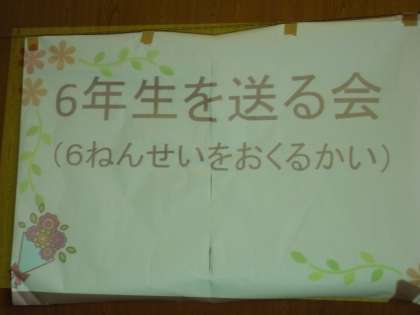 6年生を送る会
(6ねんせいをおくるかい)